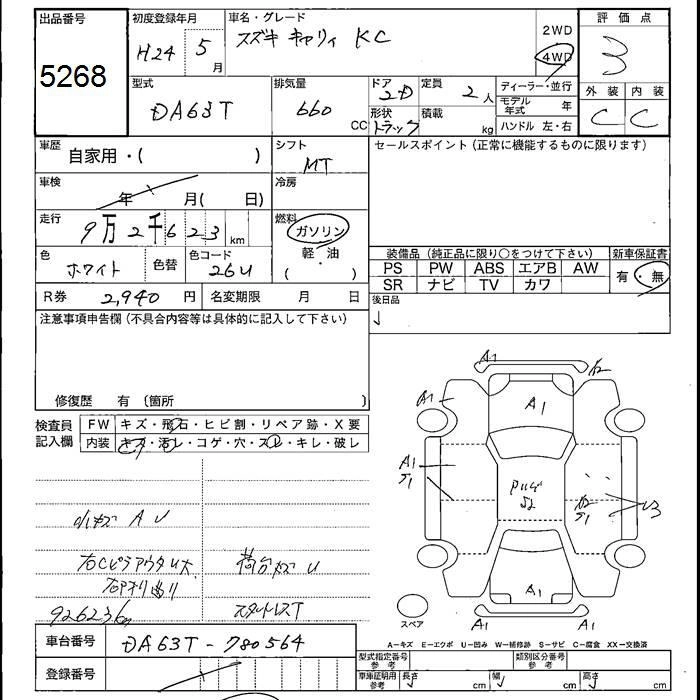 出品番号 初度登録年月 車名・グレード 評価点
5268 H24 5月 スズキ キャリィ KC 2WD 4WD 3
型式 排気量 ドア 2D 定員 2人 ディーラー・並行 外装 内装
DA63T 660 CC 形状 トラック 積載 kg モデル年式 年 C C
ハンドル 左・右
車歴 自家用・( ) シフト MT セールスポイント(正常に機能するものに限ります)
車検 年 月( 日) 冷房
走行 9万2千623km 燃料 ガソリン
軽・油
( )
色 ホワイト 色替 色コード 26U 装備品(純正品に限り○をつけて下さい) 新車保証書
PS PW ABS エアB AW 有・無
SR ナビ TV カワ
R券 2,940円 名変期限 月 日 後日品
注意事項申告欄(不具合内容等は具体的に記入して下さい)
修復歴 有〔箇所 〕
検査員記入欄 FW キズ・飛石・ヒビ割・リペア跡・X要
内装 キズ・汚レ・コゲ・穴・スレ・キレ・破レ
A1
A1
A1
A1
A1
小キズ A U
右Cピラアウタ U大
荷台キズ U
右アオリ曲り
92623km
スタットレスT
A1
A1
A1
スペア
A-キズ E-エクボ U-凹み W-補修跡 S-サビ C-腐食 XX-交換済
車台番号 DA63T-780564
型式指定番号 参考 類別区分番号 参考
登録番号 車庫証明用 参考 長さ cm 幅 cm 高さ cm